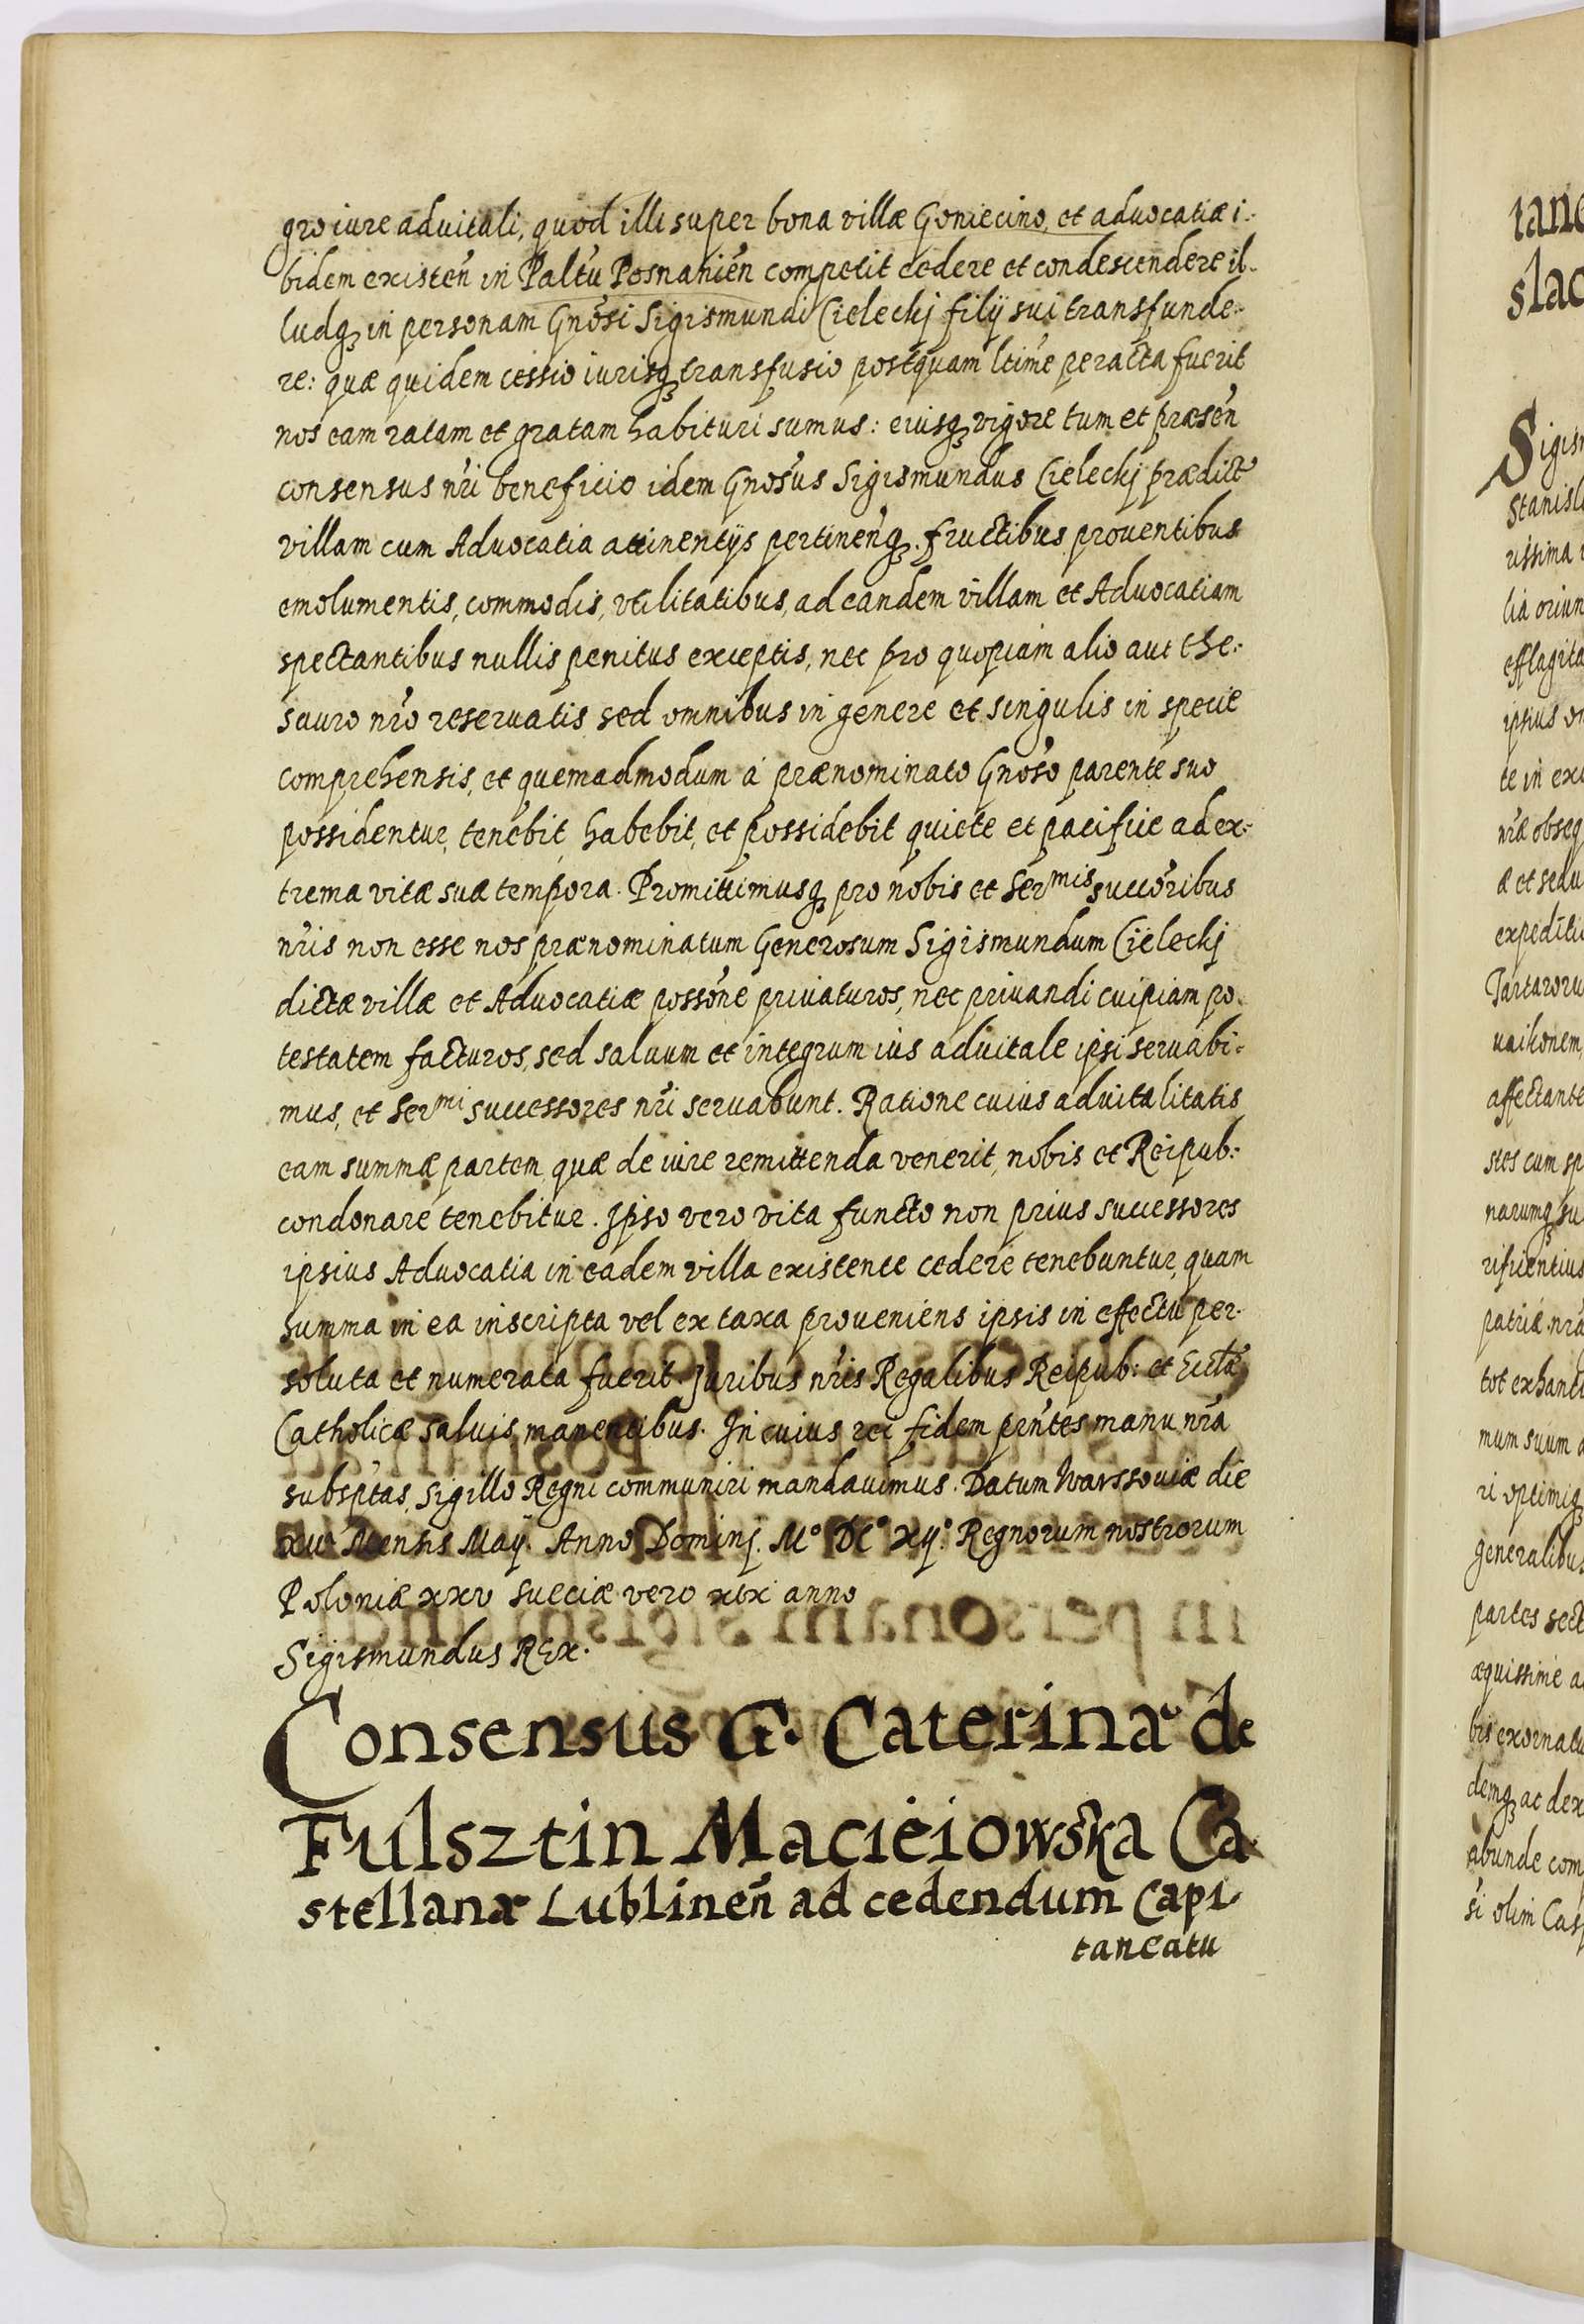 gro iure aduitali, quod illi super bona villæ Goniecino, et aduocatiæ i-
bidem existeń in Palt́u Posnanień competit cedere et condescendere il-
ludq; in personam Gnósi Sigismundi Cieleckj filij sui transfunde-
re: quæ quidem cessio iurisq; transfusio postquam ltimé peracta fuerit
nos eam ratam et gratam habituri sumus: eiusq; vigore tum et præseń
consensus nŕi beneficio idem Gnosús Sigismundus Cieleckj prædict
villam cum Aduocatia attinentijs pertineńq; fructibus prouentibus
emolumentis, commodis, vtilitatibus, ad eandem villam et Aduocatiam
spectantibus nullis penitus exceptis, nec pro quopiam alio aut the-
sauro nŕo reseruatis sed omnibus in genere et singulis in specie
comprehensis, et quemadmodum á prænominato Gnósó parente suo
possidentur, tenebit, habebit, et possidebit quiete et pacifice ad ex-
trema vitæ suæ tempora. Promittimusq; pro nobis et Serᵐⁱˢ succóribus
nŕis non esse nos prænominatum Generosum Sigismundum Cieleckj
dictæ villæ et Aduocatiæ possóne priuaturos, nec priuandi cuipiam po-
testatem facturos, sed saluum et integrum ius aduitale ipsi seruabi-
mus, et Serᵐⁱ successores nŕi seruabunt. Ratione cuius aduitalitatis
eam summæ partem quæ de iure remittenda venerit, nobis et Reipub:
condonare tenebitur. Ipso vero vita functo non prius successores
ipsius Aduocatia in eadem villa existente cedere tenebuntur, quam
summa in ea inscripta vel ex taxa proueniens ipsis in effectu per-
soluta et numerata fuerit. Juribus nŕis Regalibus Reipub: et Ecclæ
Catholicæ saluis manentibus. In cuius rei fidem prńtes manu nŕa
subsptas, sigillo Regni communiri mandauimus. Datum Warssouiæ die
xv. Mensis Maij. Anno Dominj. Mº DCº xijº. Regnorum nostrorum
Poloniæ xxv Sueciæ vero xix anno
Sigismundus REx.
Consensus G. Caterinæ de
Fulsztin Macieiowska Ca-
stellanæ Lublineñ ad cedendum Capi-
taneatu
tane
slac
Sigis
Stanisl
rissima
lia oriun
efflagita
ipsius
te in ex
nŕæ obseq
æ et sedu
expeditio
Tartaroru
affectante
stes cum sp
narumq; su
patriæ nŕa
tot exhau
mum suum a
ri optimiq;
generalibus
partes sect
æquissime a
bis exornatu
demq; ac dex
abunde com
si olim Cas